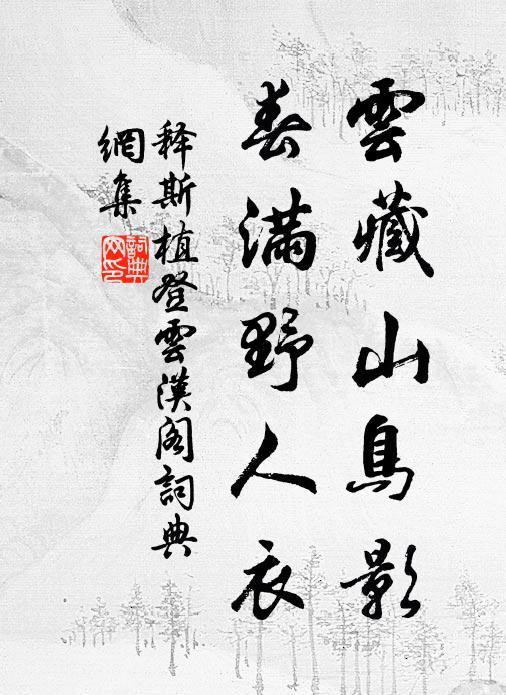 雲藏山鳥影
春滿野人衣
释斯植登雲漢阁詞典
網集
詞典
网印